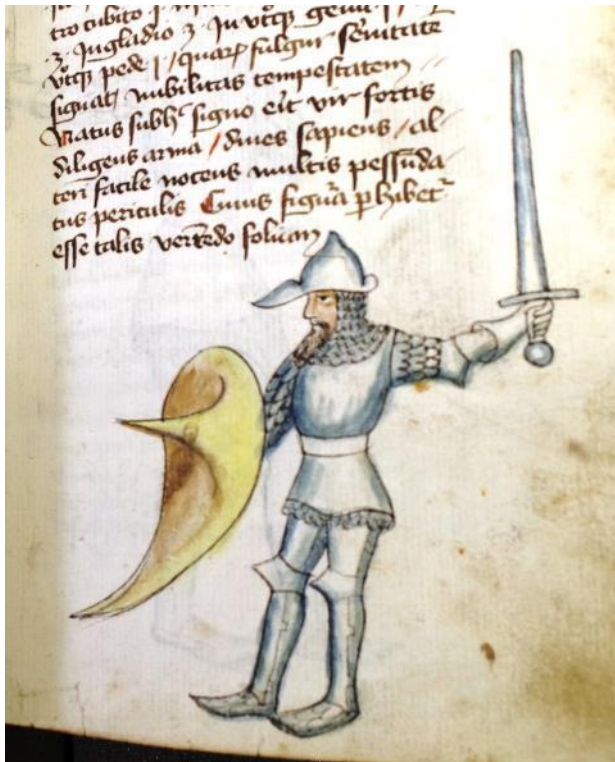 tro cubito j
3 Jn gladio 3 Jn vtqꝫ genu j
vtqꝫ pede j / quarꝫ fulgur sēnitatē
signat / nubilitas tempestatem
Natus sub hͦ signo eīt vir fortis
diligens arma / diues sapiens / al
teri facile nocens multis pessūda
tus periculis Cuius figūa ꝑhibetᷣ
esse talis verttedo foliuᷠ